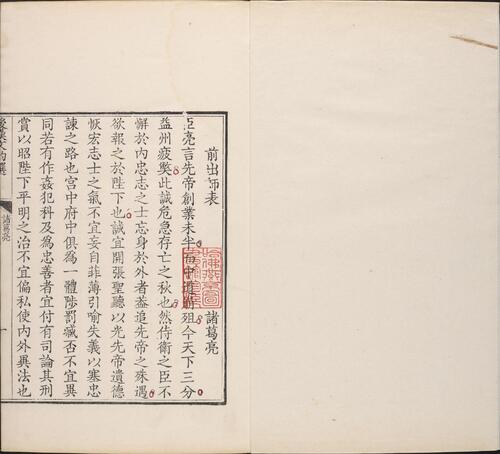 前出師表
諸葛亮
臣亮言先帝創業未半而中道崩殂今天下三分
益州疲弊此誠危急存亡之秋也然侍衛之臣不
懈於內忠志之士忘身於外者蓋追先帝之殊遇
欲報之於陛下也誠宜開張聖聽以光先帝遺德
恢宏志士之氣不宜妄自菲薄引喻失義以塞忠
諫之路也宮中府中俱為一體陟罰臧否不宜異
同若有作姦犯科及為忠善者宜付有司論其刑
賞以昭陛下平明之治不宜偏私使內外異法也
諸葛亮
一